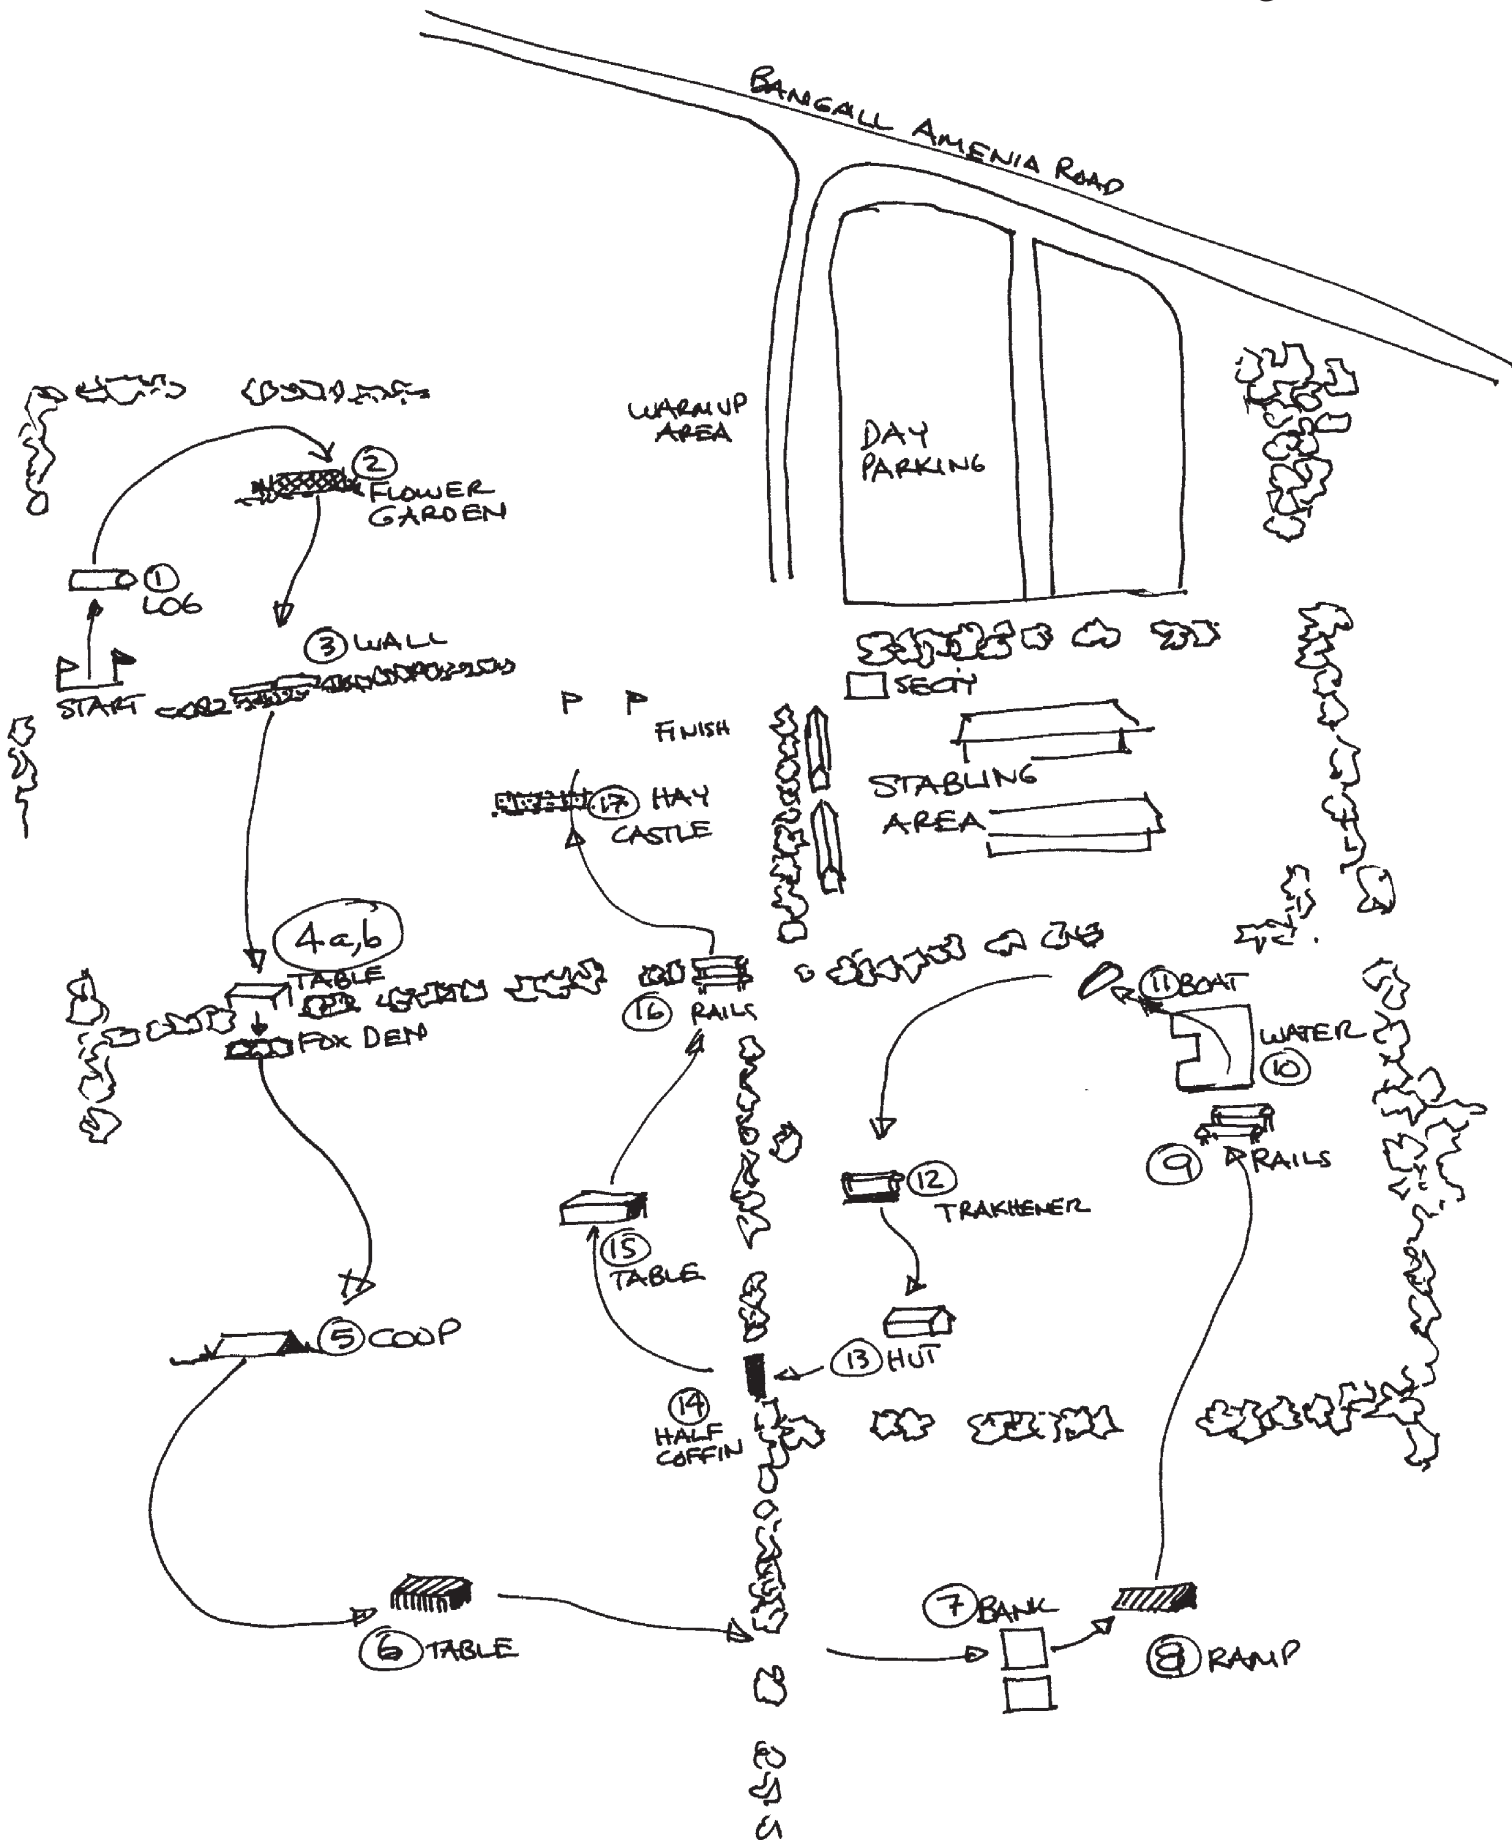 BANGALL AMENIA ROAD
WARM UP
AREA
DAY
PARKING
2
FLOWER
GARDEN
1
LOG
3 WALL
START
SECTY
FINISH
STABLING
AREA
17 HAY
CASTLE
4a,b
TABLE
FOX DEN
16 RAILS
11 BOAT
WATER
10
9 RAILS
12
TRAKHENER
15
TABLE
5 COOP
13 HUT
14
HALF
COFFIN
7 BANK
6 TABLE
8 RAMP